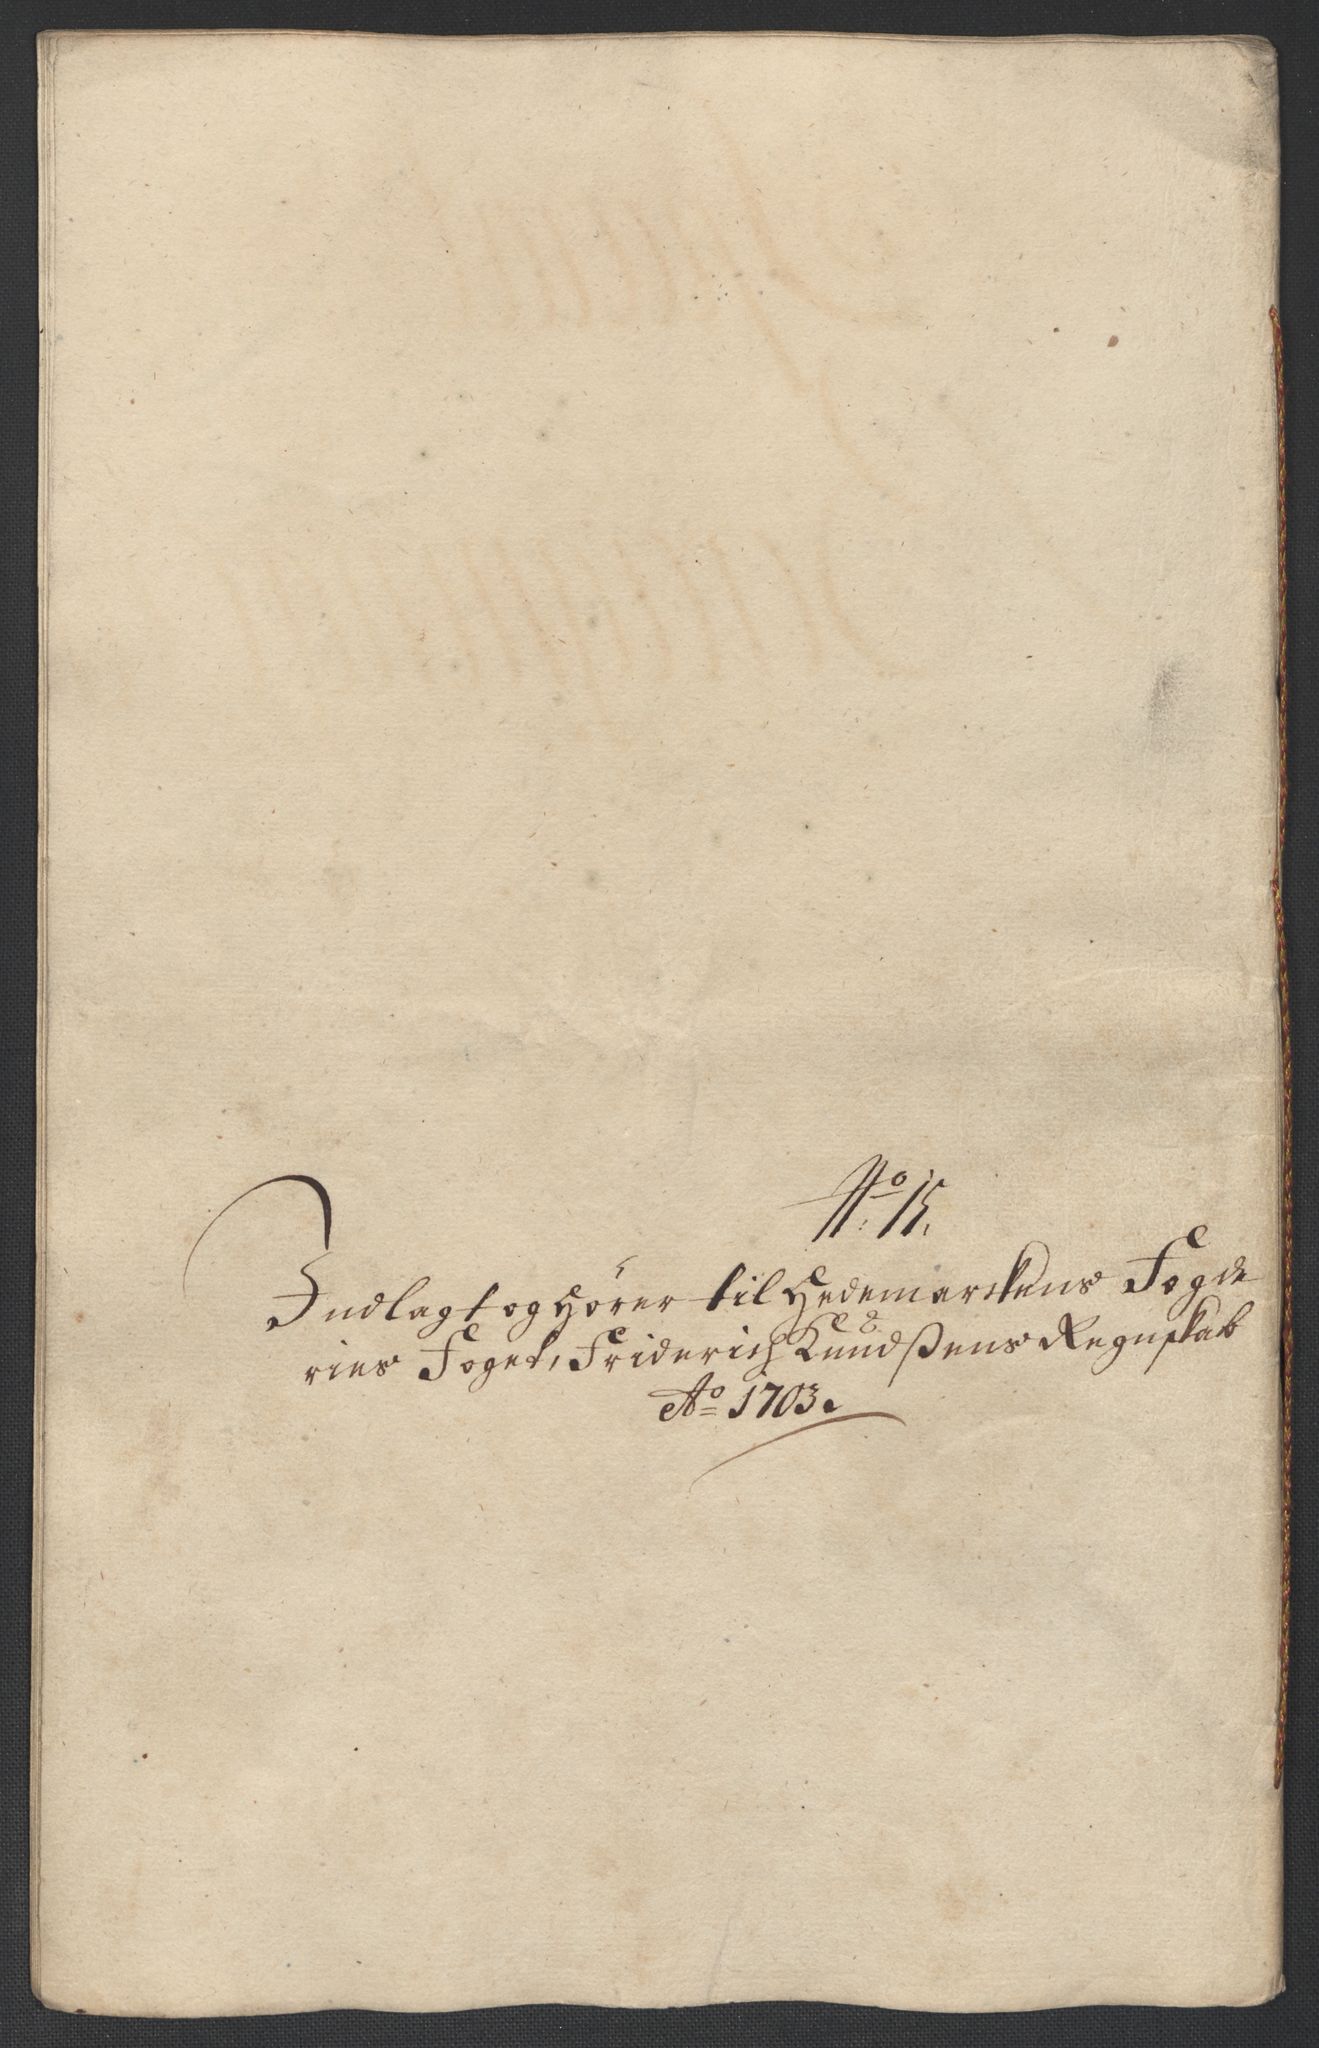 No: 15.
Indlagt og hører til Hedemarckens Fogde
ries Foget, Friderich Knudßens Regnskab
Ao 1703.